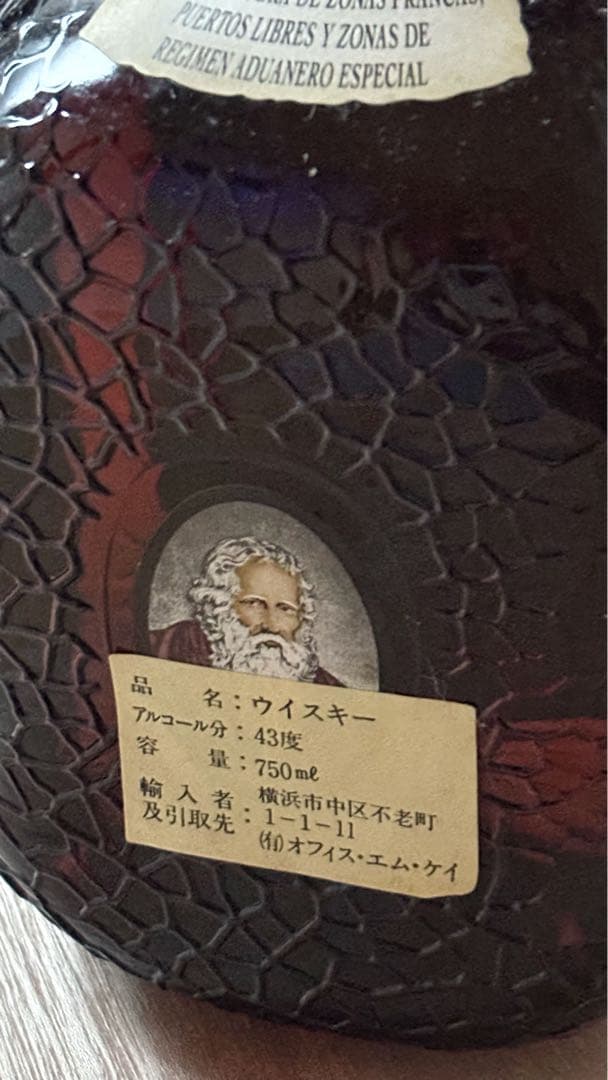 DE ZONAS FRANCAS,
PUERTOS LIBRES Y ZONAS DE
REGIMEN ADUANERO ESPECIAL
品 名:ウイスキー
アルコール分:43度
容 量:750mℓ
輸入者 横浜市中区不老町
及引取先:1-1-11
(有)オフィス・エム・ケイ